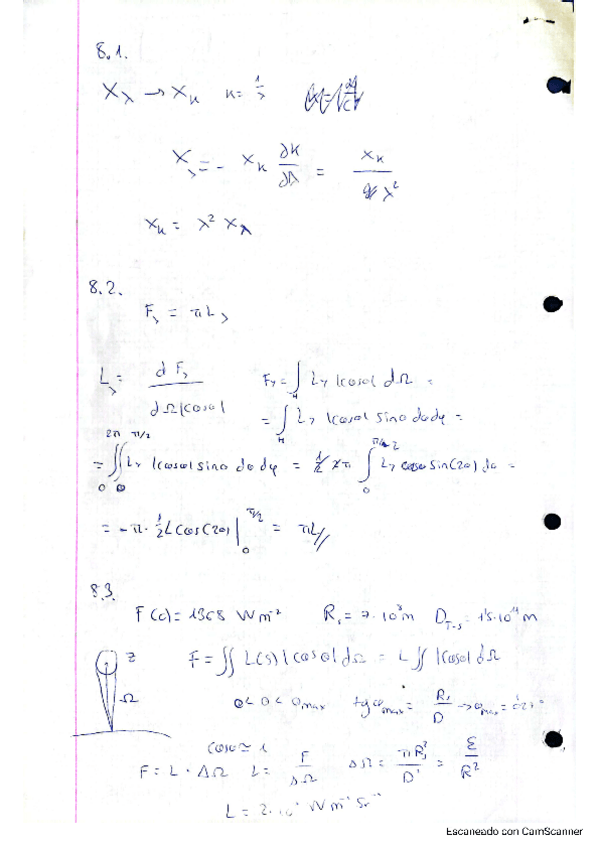 8.1.
X_λ → X_k k = 1/λ
X_λ = - X_k ∂k/∂λ = X_k / λ²
X_k = λ² X_λ
8.2.
F_λ = π L_λ
L_λ = dF_λ / dΩ|cosθ| F_λ = ∫_H L_λ |cosθ| dΩ =
= ∫_H L_λ |cosθ| sinθ dθ dφ =
= ∫_0^{2π} ∫_0^{π/2} L_λ |cosθ| sinθ dθ dφ = 1/2 2π ∫_0^{π/2} L_λ sin(2θ) dθ =
= -π · 1/2 L cos(2θ) |_0^{π/2} = πL//
8.3.
F(c) = 1368 W m⁻² R_s = 7·10⁸ m D_{T-s} = 1'5·10¹¹ m
Ω F = ∬ L(s) |cosθ| dΩ = L ∬ |cosθ| dΩ
0 < θ < θ_max tg θ_max = R_s / D → θ_max =
cosθ ≃ 1
F = L · ΔΩ L = F / ΔΩ ΔΩ = π R_s² / D² = Σ / R²
L = 2·10⁷ W m⁻² Sr⁻¹
Escaneado con CamScanner